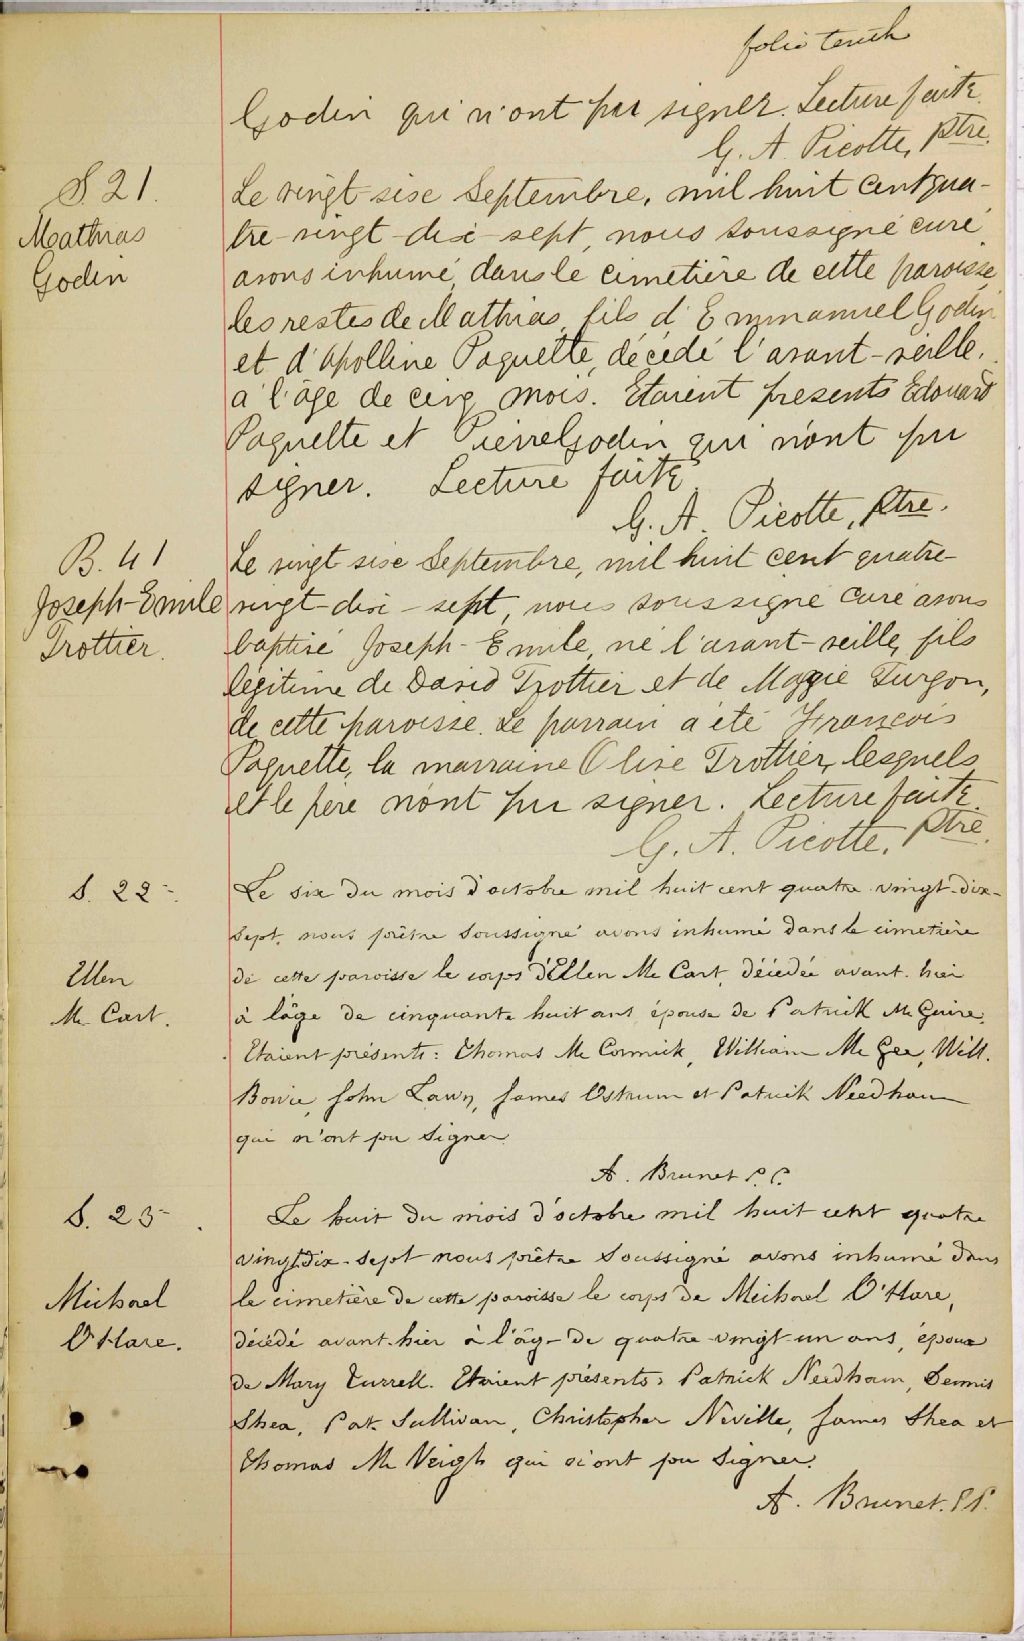 folio tenth
Godin qui n'ont pu signer. Lecture faite.
G. A. Picotte, Ptre.
S. 21.
Mathias
Godin
Le vingt-sise Septembre, mil huit cent qua-
tre-vingt-dix-sept, nous soussigné curé
avons inhumé, dans le cimetière de cette paroisse,
les restes de Mathias, fils d'Emmanuel Godin
et d'Apolline Paquette, décédé l'avant-veille,
a l'âge de cinq mois. Etaient presents Edouard
Paquette et Pierre Godin qui n'ont pu
signer. Lecture faite.
G. A. Picotte, Ptre.
B. 41
Joseph-Emile
Trottier.
Le vingt sise Septembre, mil huit cent quatre-
vingt-dix-sept, nous soussigné curé avons
baptisé Joseph-Emile, né l'avant-veille, fils
légitime de David Trottier et de Maggie Turgon,
de cette paroisse. Le parrain a été François
Paquette, la marraine Olise Trottier, lesquels
et le père n'ont pu signer. Lecture faite.
G. A. Picotte, Ptre.
S. 22-.
Ellen
Mc Cart.
Le six du mois d'octobre mil huit cent quatre vingt-dix-
sept, nous prêtre soussigné avons inhumé dans le cimetière
de cette paroisse le corps d'Ellen Mc Cart, décédée avant-hier
à l'âge de cinquante huit ans épouse de Patrick McGuire.
Etaient présents: Thomas Mc Cormick, William Mc Gee, Will.
Bowie, John Lawn, James Ostrum et Patrick Needham
qui n'ont pu signer.
A. Brunet P.P.
S. 23-.
Michael
O'Hare.
Le huit du mois d'octobre mil huit cent quatre
vingt dix-sept nous prêtre soussigné avons inhumé dans
le cimetière de cette paroisse le corps de Michael O'Hare,
décédé avant-hier à l'âge de quatre-vingt-un ans, époux
de Mary Turrell. Etaient présents: Patrick Needham, Dennis
Shea, Pat. Sullivan, Christopher Neville, James Shea et
Thomas Mc Veigh qui n'ont pu signer.
A. Brunet. P.P.